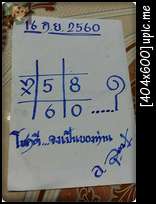 16 ก.ย. 2560
x3 5 8
6 0 .....?
โชคดี...จงเป็นของท่าน
[404x600] upic.me